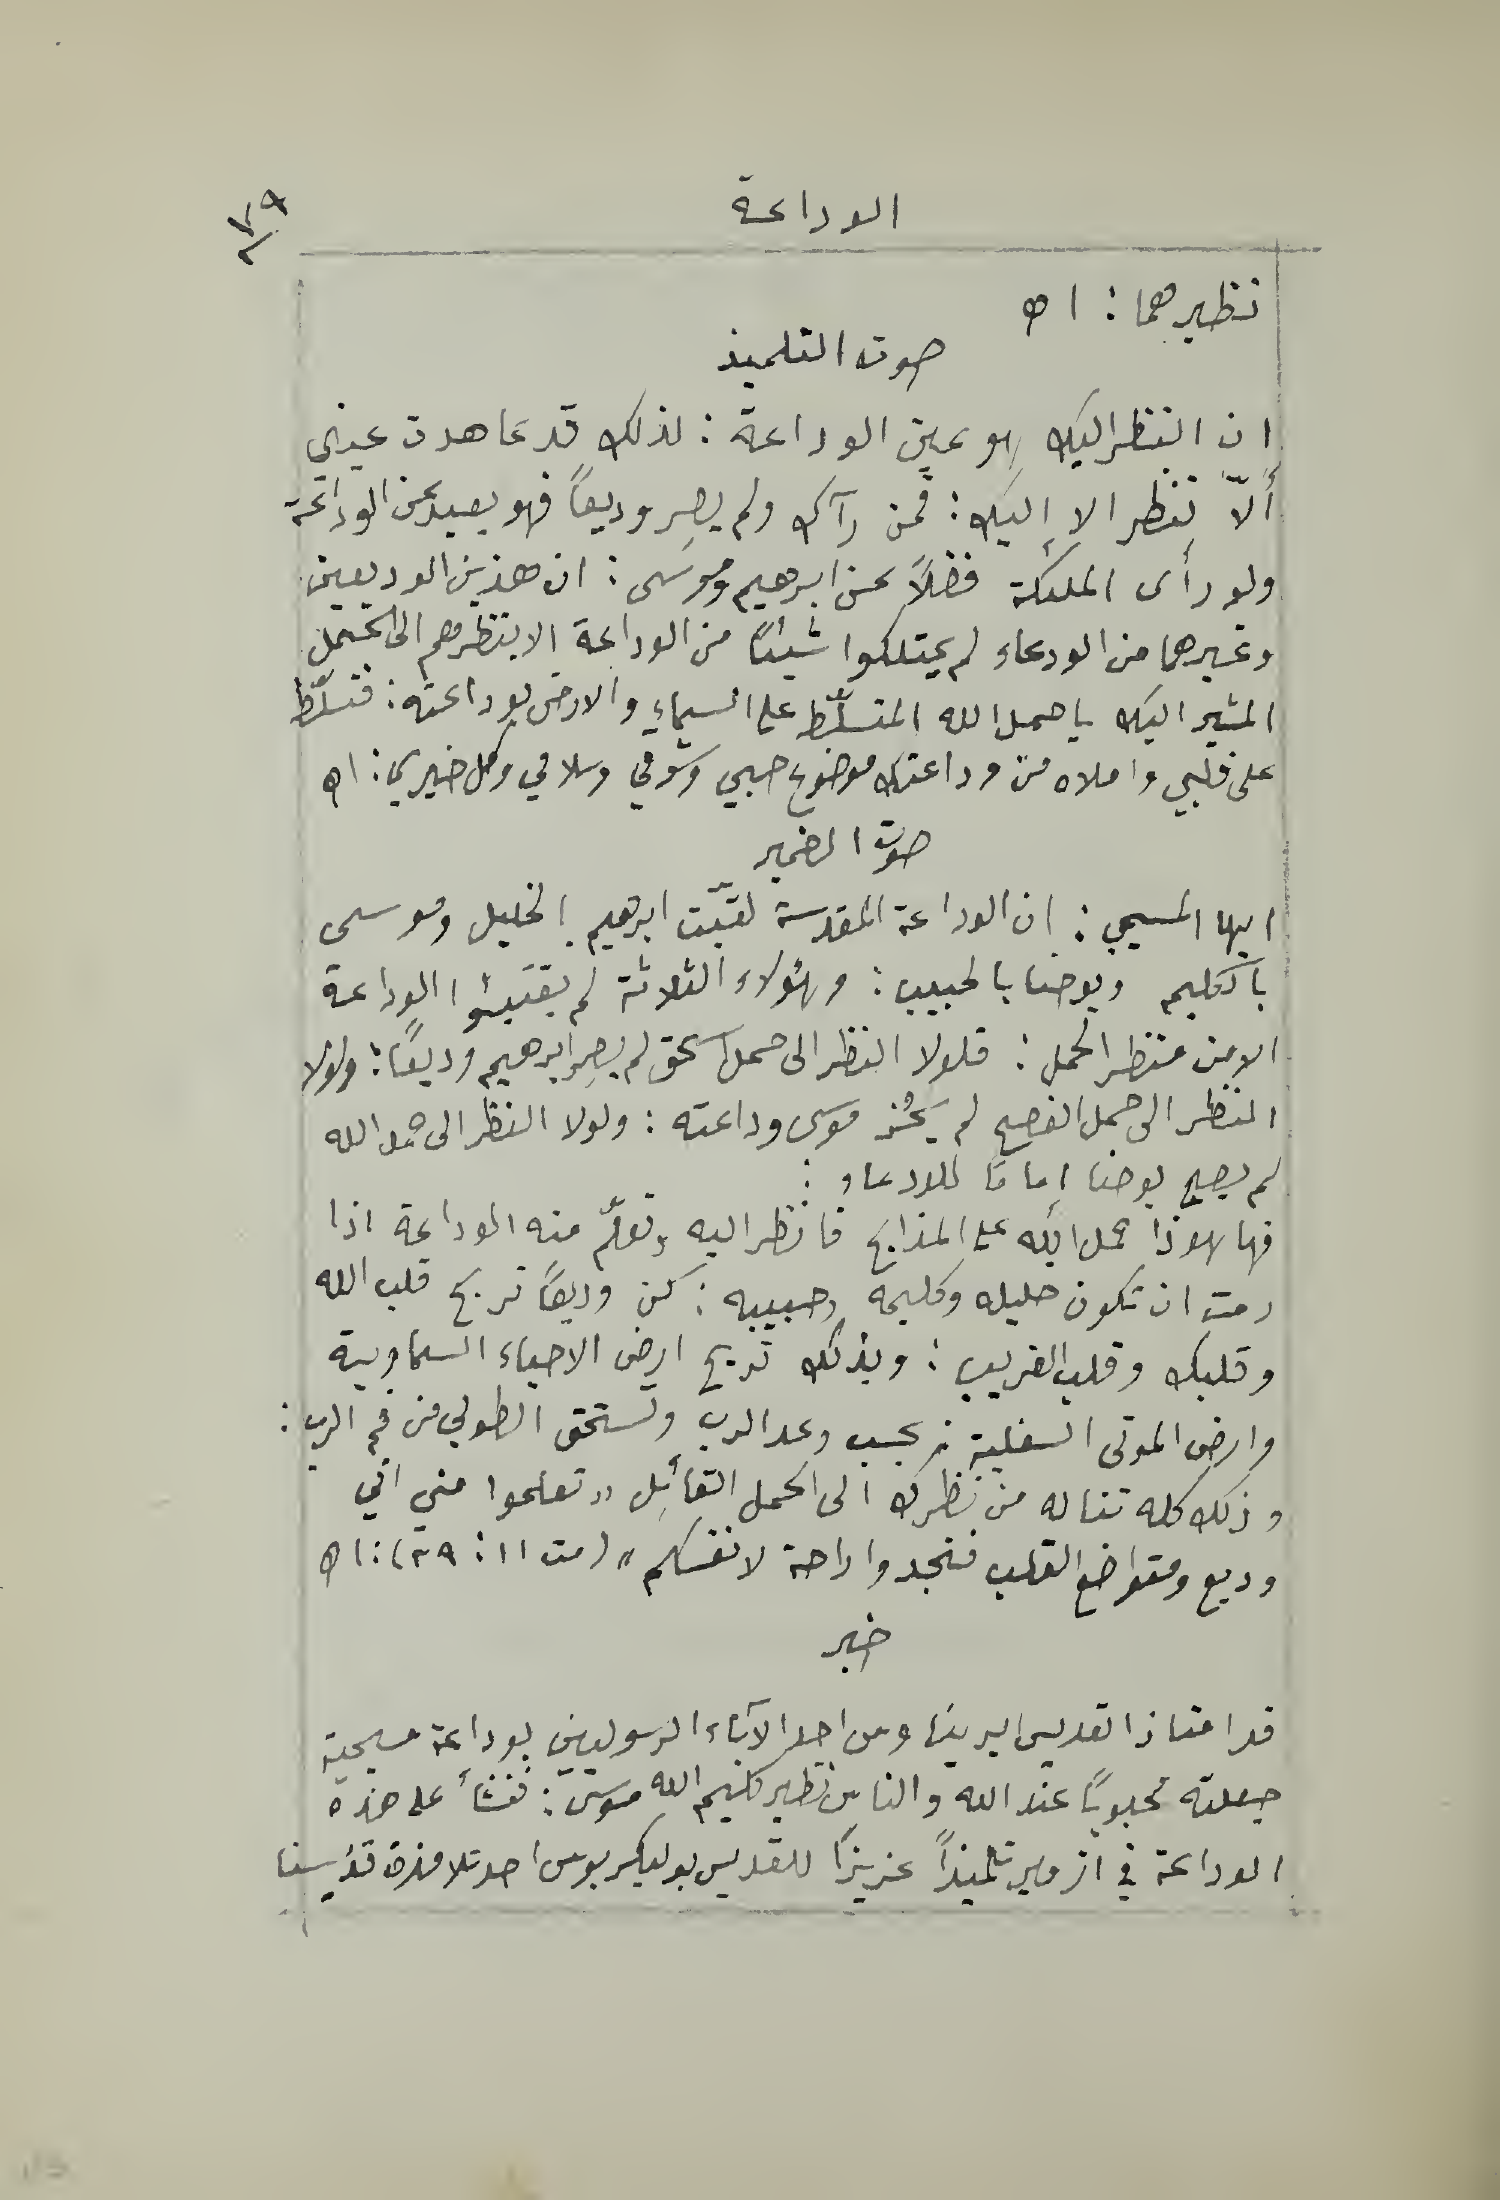 الوداعة
٧٩
نظيرهما : اه
صوت التلميذ
ان النظر اليك هو عين الوداعة : لذلك قد عاهدت عينيّ
ألّا تنظر الا إليك : فمن رآك ولم يصِر وديعاً فهو بعيد عن الوداعة
ولو رأى الملئكة فضلاً عن ابرهيم وموسَى : ان هذين الوديعين
وغيرهما من الودعاء لم يمتلكوا شيئاً من الوداعة الا بنظرهم الى الحمل
المشير اليك يا حمل الله المتسلّط على السماءِ والارض بوداعته : فتسلّط
على قلبي واملاه من وداعتك موضوع حبي وشوقي وسلامي وكل خيري : اه
صوت الضمير
ايها المسيحي : ان الوداعة المقدسة لقبّت ابرهيم بالخليل وموسى
بالكليم ويوحنا بالحبيب : وهؤلاء الثلاثة لم يقتبسُوا الوداعة
الا من منظر الحمل : فلولا النظر الى حمل اسحق لم يصِر ابرهيم وديعًا : ولولا
النظر الى حمل الفصح لم يَحُز موسى وداعته : ولولا النظر الى حمل الله
لم يصبح يوحنا إمامًا للودعاء :
فها هوذا حمل الله على المذابح فانظر اليه وتعلّم منه الوداعة اذا
رمت ان تكون خليله وكليمه وحبيبه : كن وديعًا تربح قلب الله
وقلبك وقلب القريب : وبذلك تربح ارض الاحياء السماوية
وارض الموتى السفلية بحسب وعد الرب وتستحق الطوبى من فم الرب :
وذلك كله تناله من نظرك الى الحمل القائِل «تعلموا مني اني
وديع ومتواضع القلب فتجدوا راحة لانفسكم» (مت ١١ : ٢٩) : اه
خبر
قد امتاز القديس ايريناوس احد الآباء الرسوليين بوداعة مسيحية
جعلته محبوبًا عند الله والناس نظير كليم الله موسى : فنشأ على هذه
الوداعة في ازمير تلميذاً عزيزًا للقديس بوليكربوس احد تلامذة قدّيسنا